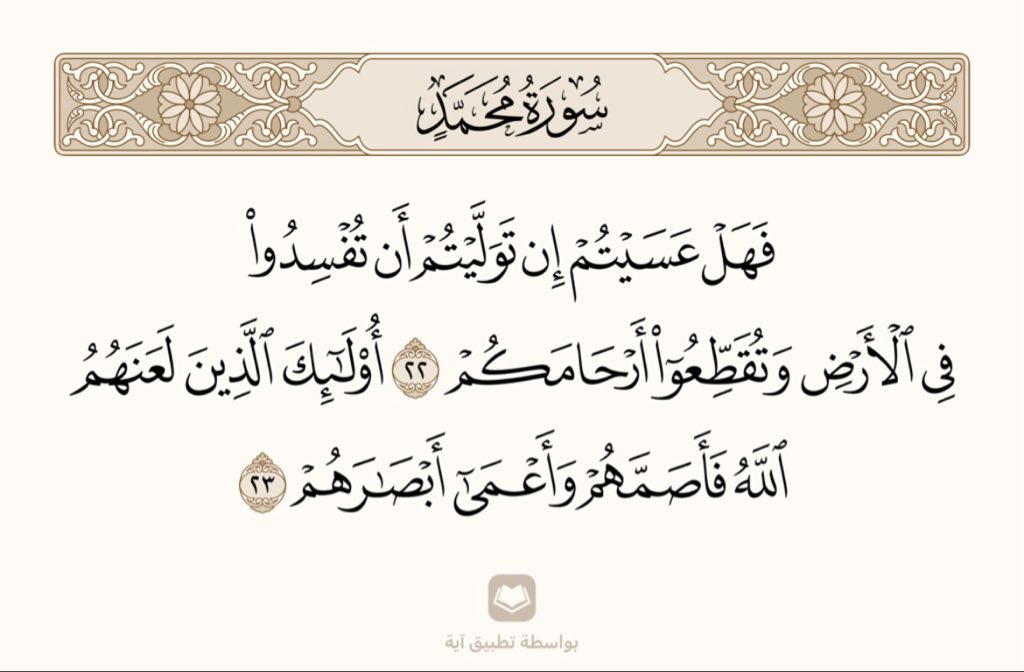 سُورَةُ مُحَمَّدٍ
فَهَلۡ عَسَيۡتُمۡ إِن تَوَلَّيۡتُمۡ أَن تُفۡسِدُواْ
فِي ٱلۡأَرۡضِ وَتُقَطِّعُوٓاْ أَرۡحَامَكُمۡ ٢٢ أُوْلَٰٓئِكَ ٱلَّذِينَ لَعَنَهُمُ
ٱللَّهُ فَأَصَمَّهُمۡ وَأَعۡمَىٰٓ أَبۡصَٰرَهُمۡ ٢٣
بواسطة تطبيق آية